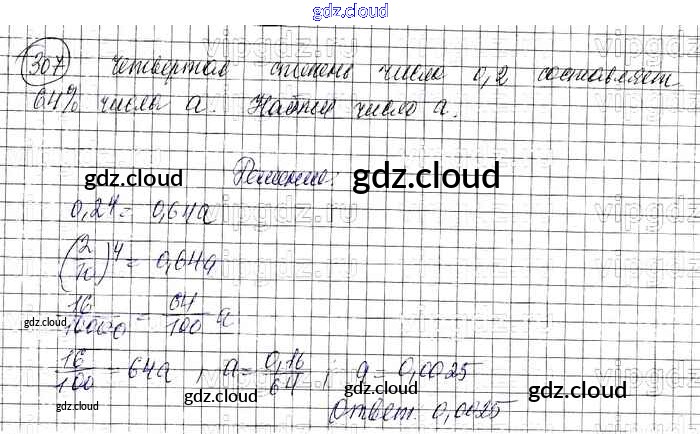 gdz.cloud
vipgdz.ru
307 Четвертая степень числа 0,2 составляет
64% числа a. Найти число a.
Решение:
gdz.cloud gdz.cloud
0,2⁴ = 0,64a
vipgdz.ru
(2/10)⁴ = 0,64a
16/10000 = 64/100 a
gdz.cloud
16/100 = 64a, a = 0,16/64; a = 0,0025
gdz.cloud gdz.cloud
Ответ 0,0025
gdz.cloud